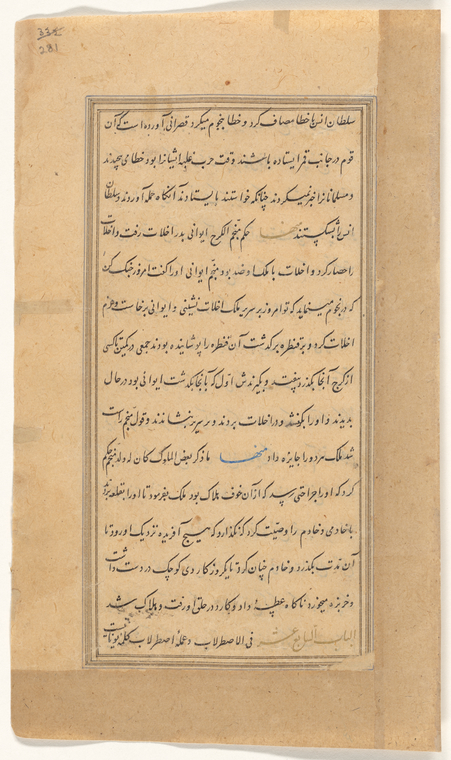 334
281
سلطان انس با خطا مصاف کرد و خطا بنجوم میکرد قصرانی آورده است که آن
قوم در جانب قمر ایستاده باشند وقت حرب غلبه ایشانرا بود خطا می
و مسلمانانرا خبر نمیکردند چنانکه خواستند بایستادند آنگاه حمله آوردند و سلطان
انس را بشکستند منها حکم منجم الکرج ایوانی بدر اخلات رفت و اخلات
را حصار کرد و اخلات با ملک اوحد بود منجم ایوانی او را گفت امروز جنگ کن
که در نجوم مینماید که تو امروز بر سریر ملک اخلات نشینی و ایوانی برخاست و عزم
اخلات کرد و بر قنطره برگذشت آن قنطره را پوشانیده بودند جمعی در کمین تا کسی
از کرج آنجا بگذرد بیفتد و بگیرندش اول که بآنجا بگذشت ایوانی بود در حال
بدیدند و او را بگرفتند و در اخلات بردند و بر سریر نشاندند و قول منجم راست
شد ملک مرد و را جایزه داد منها ما ذکر بعض الملوک کان له ولد منجم حکم
کرد که او را جراحتی رسد که از آن خوف هلاک بود ملک بفرمود تا او را بقلعه برند
با خادمی و خادم را وصیت کرد که نگذارد که هیچ آفریده نزدیک او رود تا
آن مدت بگذرد و خادم چنان کرد تا یکروز کاردی کوچک در دست داشت
و خربزه میخورد ناگاه عطسه داد و کارد در حلق او رفت و هلاک شد
الباب السابع عشر فی الاصطرلاب و علمه اصطرلاب کلمه یونانیست